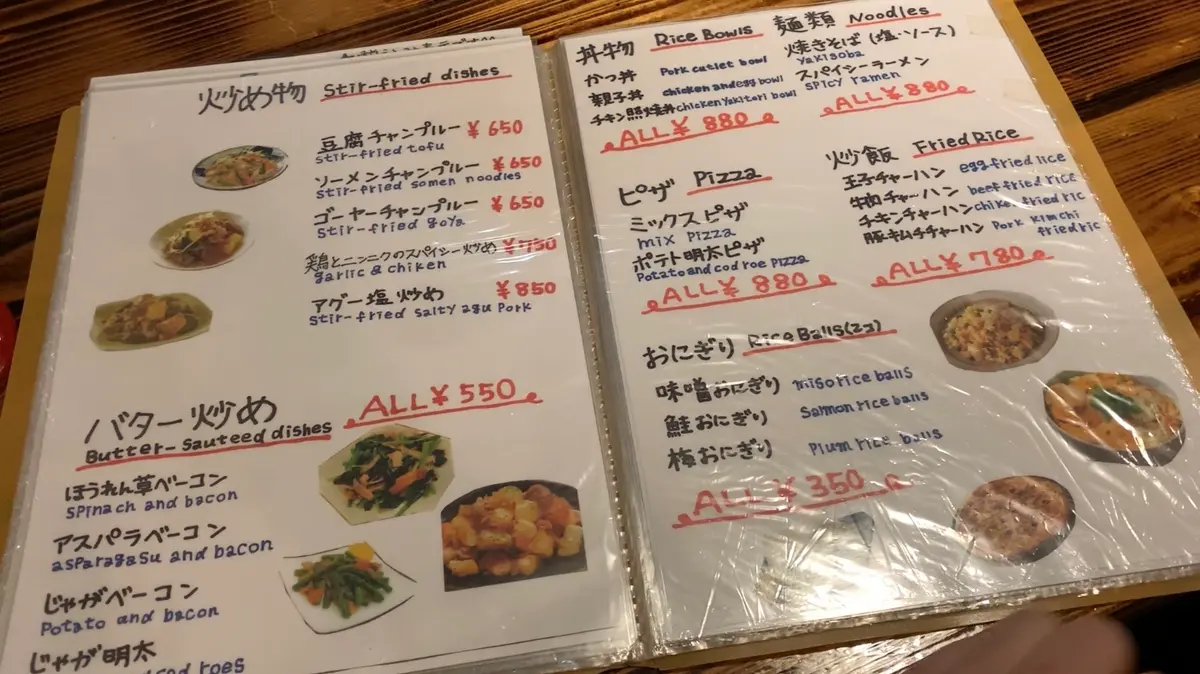 炒め物 Stir-fried dishes
豆腐チャンプルー ¥650
stir-fried tofu
ソーメンチャンプルー ¥650
stir-fried somen noodles
ゴーヤーチャンプルー ¥650
stir-fried goya
鶏とニンニクのスパイシー炒め ¥750
garlic & chiken
アグー塩炒め ¥850
stir-fried salty agu pork
バター炒め ALL¥550
Butter-sauteed dishes
ほうれん草ベーコン
spinach and bacon
アスパラベーコン
asparagasu and bacon
じゃがベーコン
Potato and bacon
じゃが明太
roes
丼物 Rice Bowls
かつ丼 Pork cutlet bowl
親子丼 chicken and egg bowl
チキン照焼丼 chicken yakitori bowl
ALL¥880
麺類 Noodles
焼きそば(塩・ソース)
yakisoba
スパイシーラーメン
spicy ramen
ALL¥880
ピザ Pizza
ミックスピザ
mix pizza
ポテト明太ピザ
Potato and cod roe pizza
ALL¥880
炒飯 Fried Rice
玉子チャーハン egg fried lice
牛肉チャーハン beef fried rice
チキンチャーハン chiken fried ric
豚キムチチャーハン Pork kimchi
fried ric
ALL¥780
おにぎり Rice Balls(2コ)
味噌おにぎり miso rice balls
鮭おにぎり Salmon rice balls
梅おにぎり Plum rice balls
ALL¥350